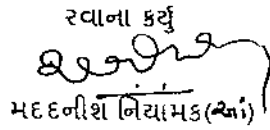 રવાના કર્યુ
મદદનીશ નિયામક(આં)